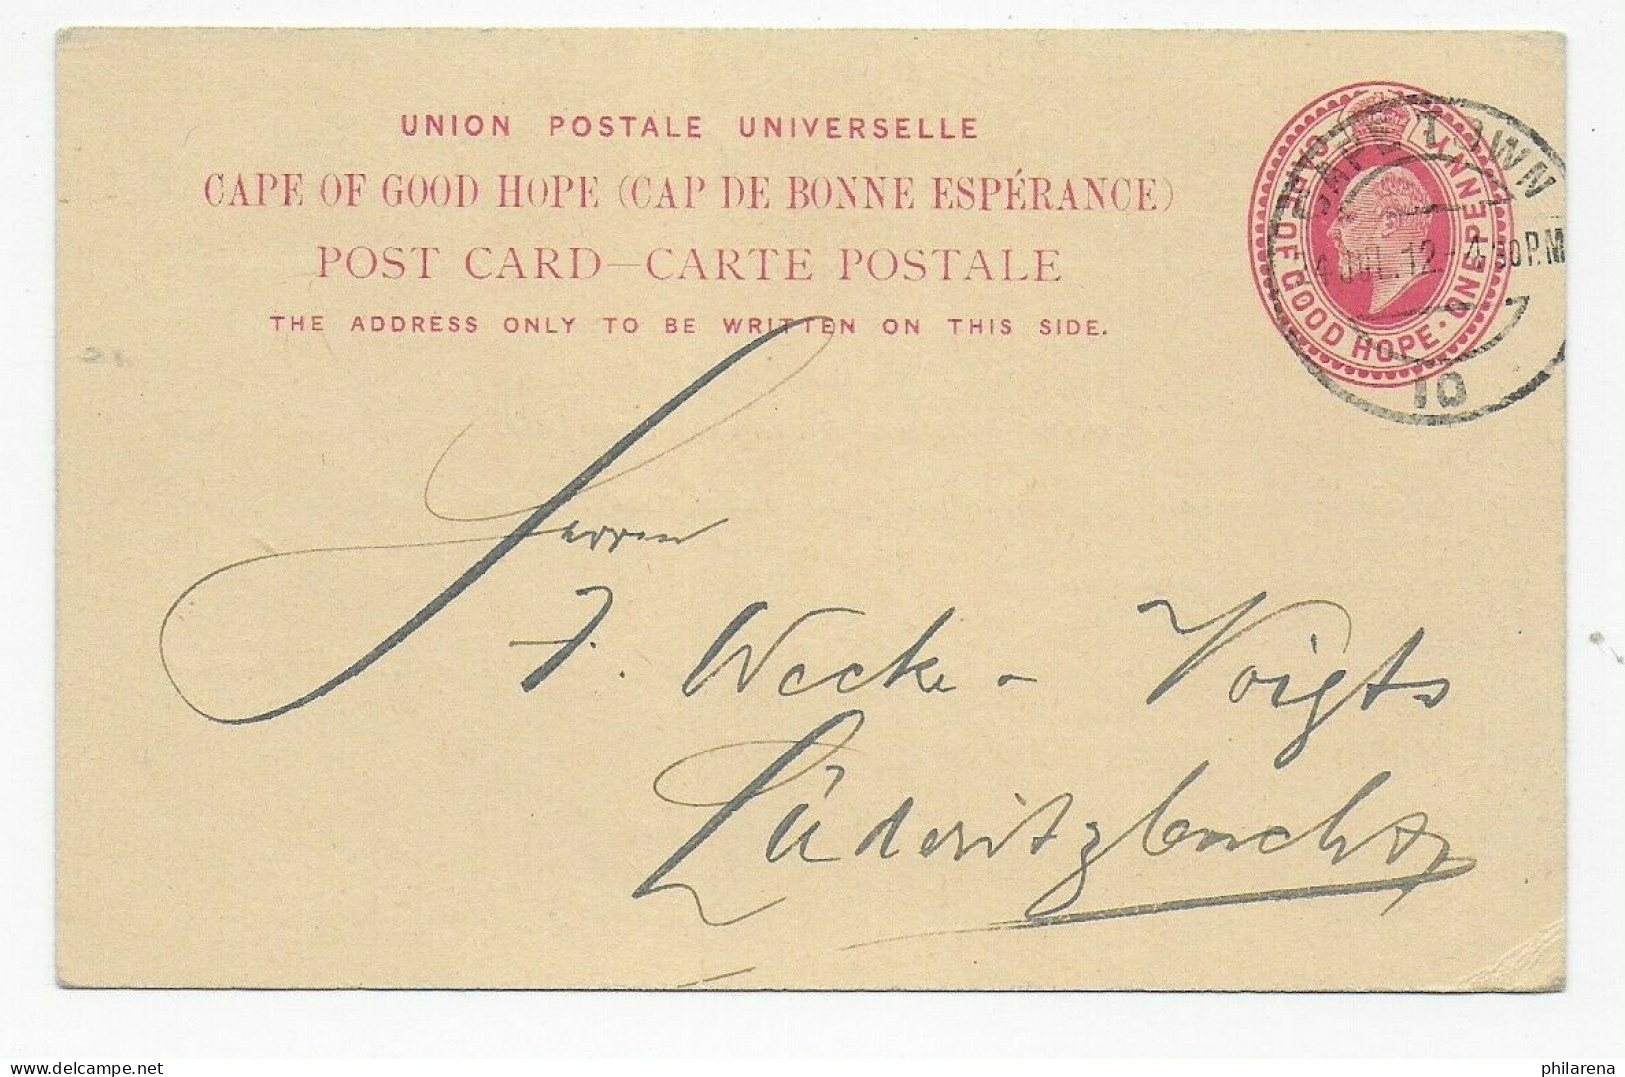 UNION POSTALE UNIVERSELLE
CAPE OF GOOD HOPE (CAP DE BONNE ESPÉRANCE)
POST CARD—CARTE POSTALE
THE ADDRESS ONLY TO BE WRITTEN ON THIS SIDE.
CAPE OF GOOD HOPE · ONE PENNY
CAPE TOWN
JUL. 12 - 4 30 P.M
10
Herren
F. Wecke - Voigts
Lüderitzbucht
philarena